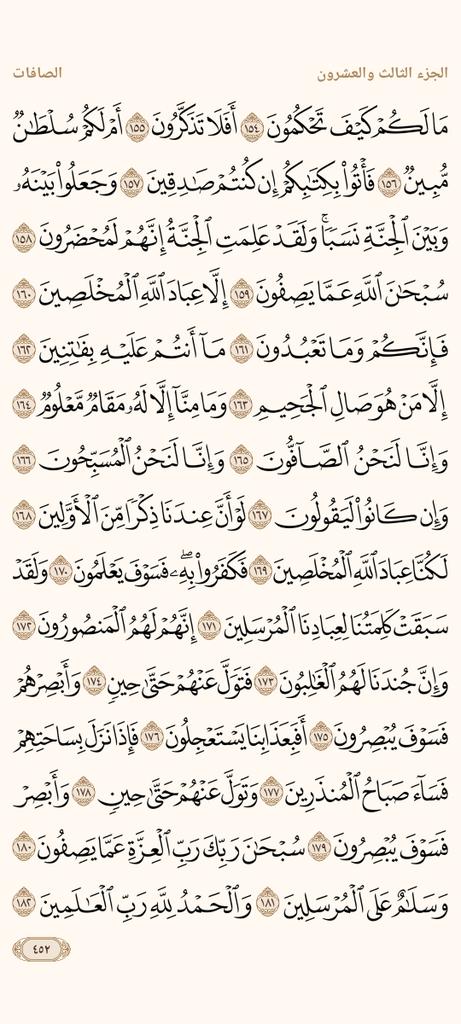 الجزء الثالث والعشرون الصافات
مَا لَكُمْ كَيْفَ تَحْكُمُونَ ١٥٤ أَفَلَا تَذَكَّرُونَ ١٥٥ أَمْ لَكُمْ سُلْطَٰنٌ
مُّبِينٌ ١٥٦ فَأْتُوا۟ بِكِتَٰبِكُمْ إِن كُنتُمْ صَٰدِقِينَ ١٥٧ وَجَعَلُوا۟ بَيْنَهُۥ
وَبَيْنَ ٱلْجِنَّةِ نَسَبًۭا ۚ وَلَقَدْ عَلِمَتِ ٱلْجِنَّةُ إِنَّهُمْ لَمُحْضَرُونَ ١٥٨
سُبْحَٰنَ ٱللَّهِ عَمَّا يَصِفُونَ ١٥٩ إِلَّا عِبَادَ ٱللَّهِ ٱلْمُخْلَصِينَ ١٦٠
فَإِنَّكُمْ وَمَا تَعْبُدُونَ ١٦١ مَآ أَنتُمْ عَلَيْهِ بِفَٰتِنِينَ ١٦٢
إِلَّا مَنْ هُوَ صَالِ ٱلْجَحِيمِ ١٦٣ وَمَا مِنَّآ إِلَّا لَهُۥ مَقَامٌ مَّعْلُومٌ ١٦٤
وَإِنَّا لَنَحْنُ ٱلصَّآفُّونَ ١٦٥ وَإِنَّا لَنَحْنُ ٱلْمُسَبِّحُونَ ١٦٦
وَإِن كَانُوا۟ لَيَقُولُونَ ١٦٧ لَوْ أَنَّ عِندَنَا ذِكْرًا مِّنَ ٱلْأَوَّلِينَ ١٦٨
لَكُنَّا عِبَادَ ٱللَّهِ ٱلْمُخْلَصِينَ ١٦٩ فَكَفَرُوا۟ بِهِۦ ۖ فَسَوْفَ يَعْلَمُونَ ١٧٠ وَلَقَدْ
سَبَقَتْ كَلِمَتُنَا لِعِبَادِنَا ٱلْمُرْسَلِينَ ١٧١ إِنَّهُمْ لَهُمُ ٱلْمَنصُورُونَ ١٧٢
وَإِنَّ جُندَنَا لَهُمُ ٱلْغَٰلِبُونَ ١٧٣ فَتَوَلَّ عَنْهُمْ حَتَّىٰ حِينٍ ١٧٤ وَأَبْصِرْهُمْ
فَسَوْفَ يُبْصِرُونَ ١٧٥ أَفَبِعَذَابِنَا يَسْتَعْجِلُونَ ١٧٦ فَإِذَا نَزَلَ بِسَاحَتِهِمْ
فَسَآءَ صَبَاحُ ٱلْمُنذَرِينَ ١٧٧ وَتَوَلَّ عَنْهُمْ حَتَّىٰ حِينٍ ١٧٨ وَأَبْصِرْ
فَسَوْفَ يُبْصِرُونَ ١٧٩ سُبْحَٰنَ رَبِّكَ رَبِّ ٱلْعِزَّةِ عَمَّا يَصِفُونَ ١٨٠
وَسَلَٰمٌ عَلَى ٱلْمُرْسَلِينَ ١٨١ وَٱلْحَمْدُ لِلَّهِ رَبِّ ٱلْعَٰلَمِينَ ١٨٢
٤٥٢